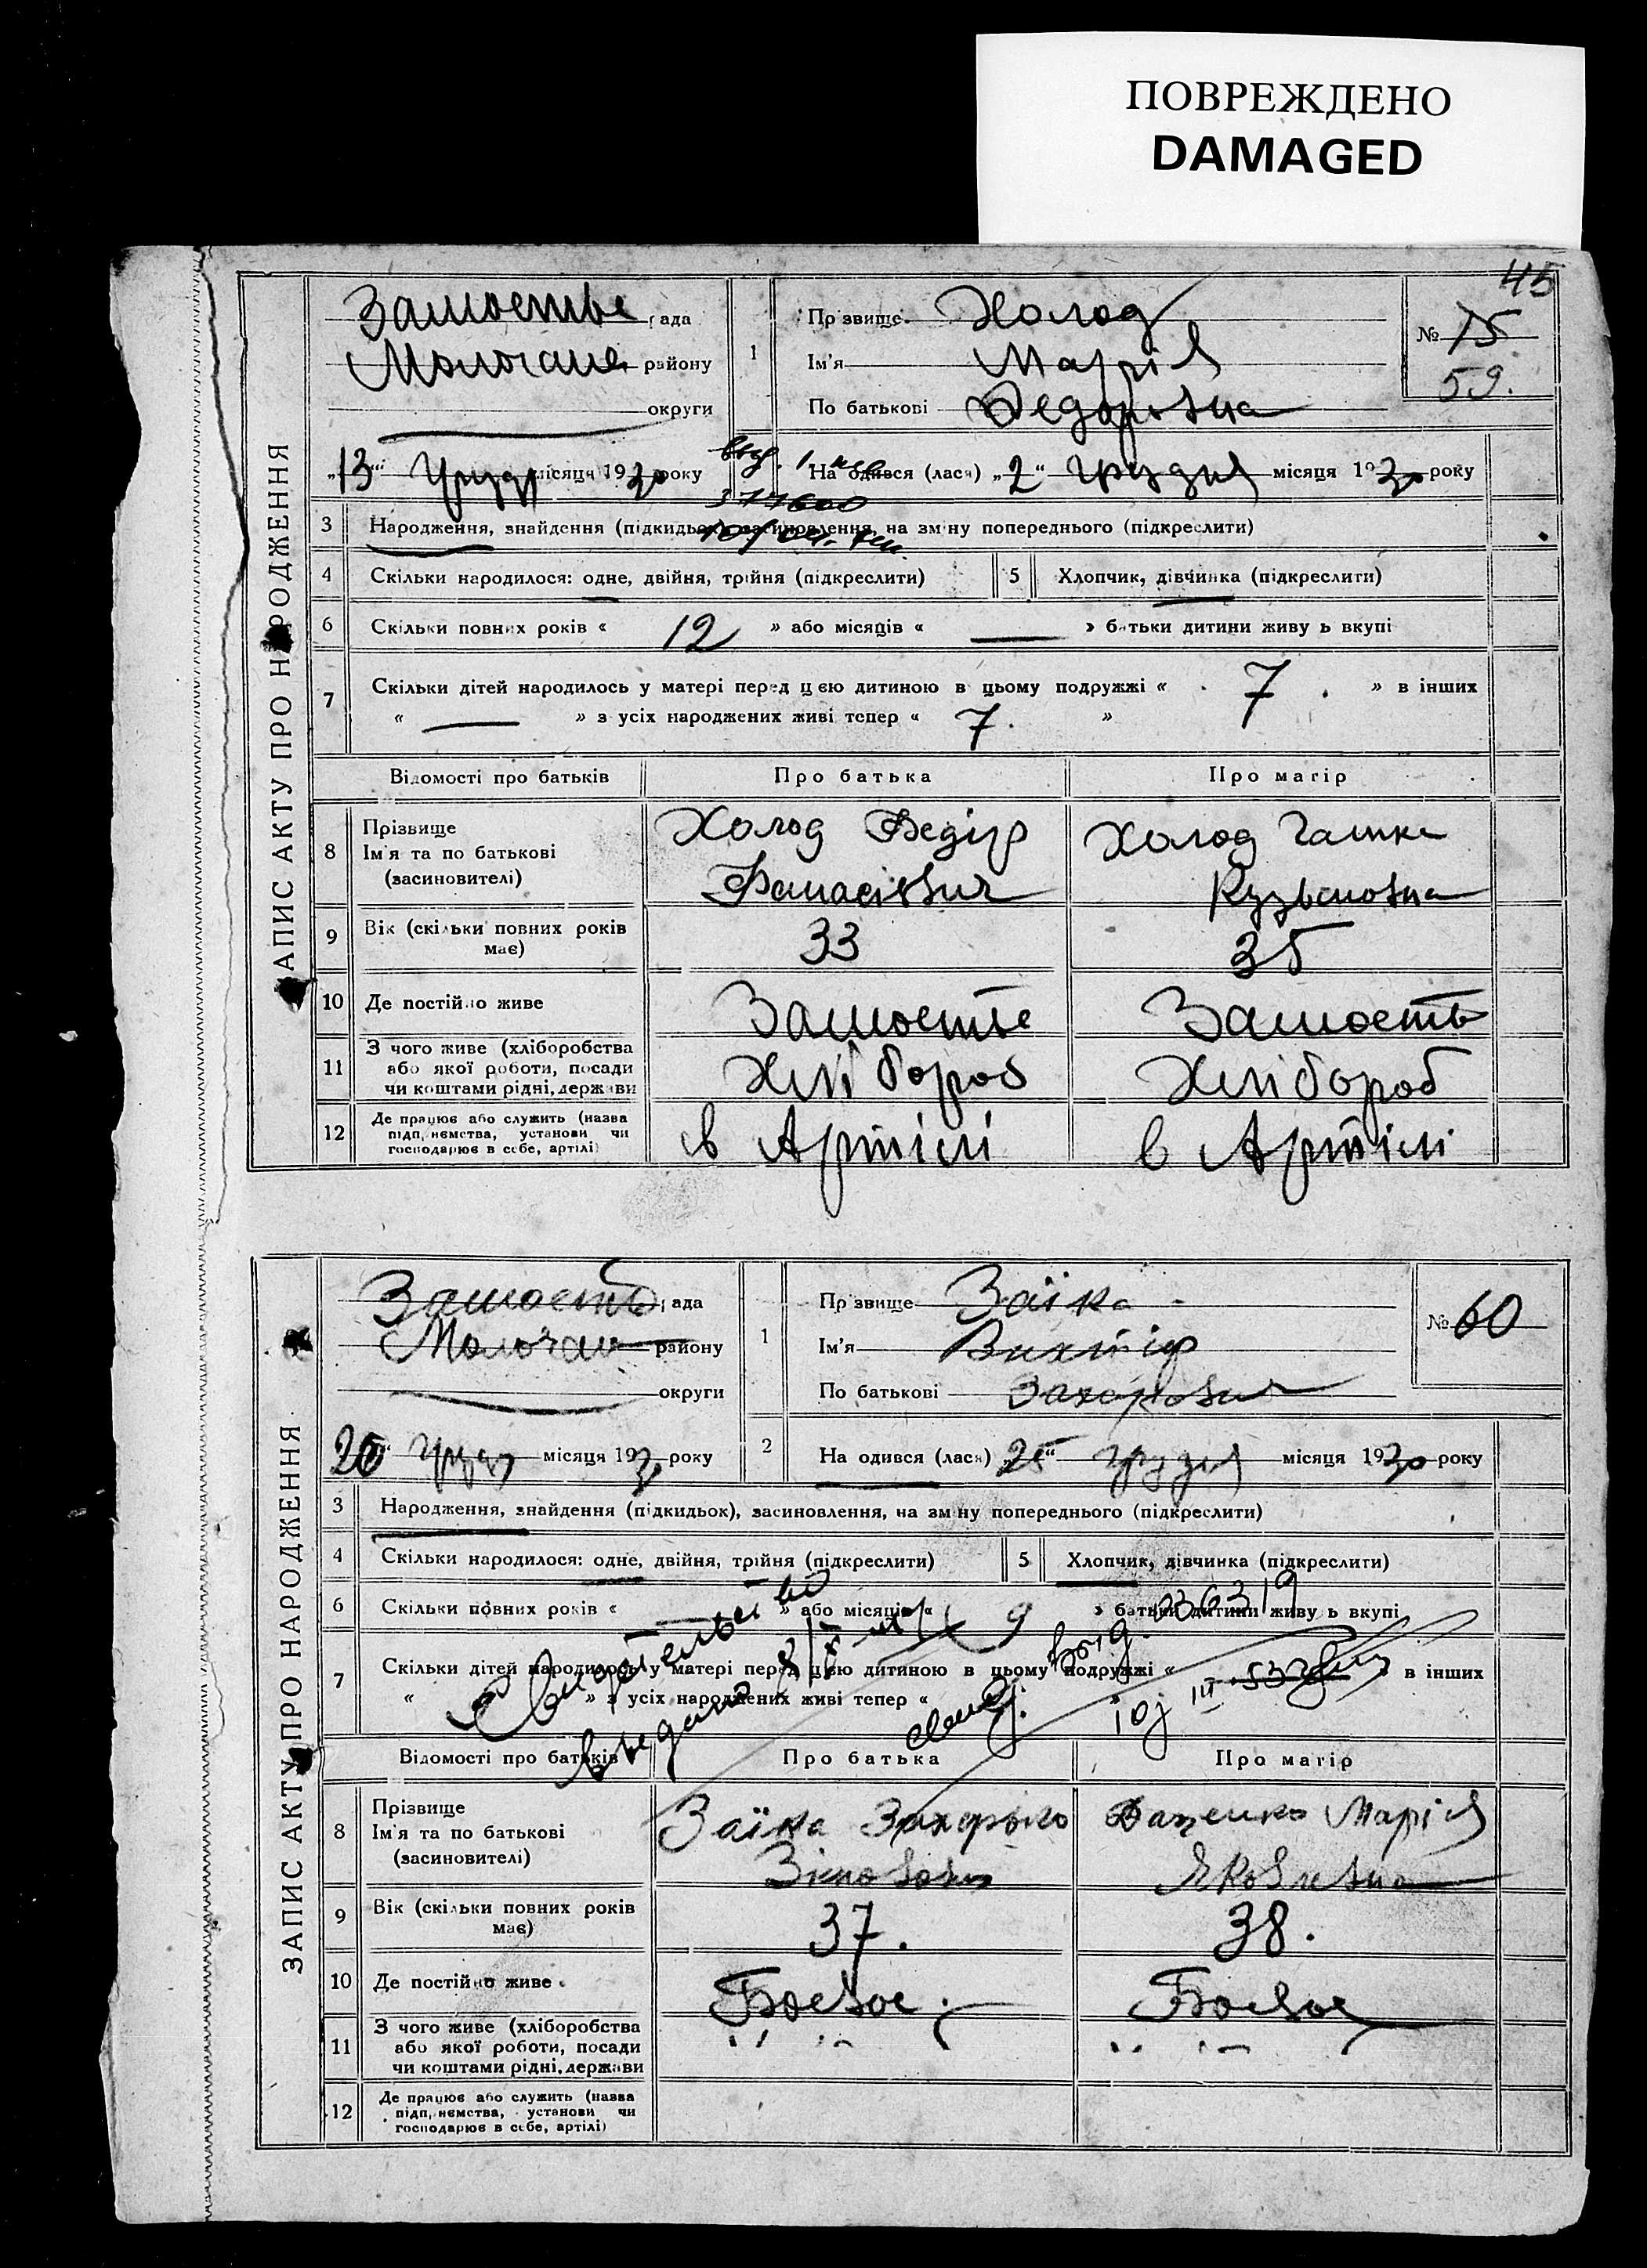 ПОВРЕЖДЕНО
DAMAGED
45
ЗАПИС АКТУ ПРО НАРОДЖЕННЯ
Замостье рада
Молочан району
округи
1
Прізвище Холод
Ім'я Марія
По батькові Федоровна
№ 75
59.
„13“ Грудн місяця 1930 року
На одився (лася) „2“ грудня місяця 1930 року
3 Народження, знайдення (підкидьок), засиновлення, на зміну попереднього (підкреслити)
4 Скільки народилося: одне, двійня, трійня (підкреслити)
5 Хлопчик, дівчинка (підкреслити)
6 Скільки повних років « 12 » або місяців « — » батьки дитини живуть вкупі
7 Скільки дітей народилось у матері перед цією дитиною в цьому подружжі « 7 » в інших
« — » з усіх народжених живі тепер « 7. »
Відомості про батьків Про батька Про матір
8 Прізвище Ім'я та по батькові (засиновителі)
Холод Федір Фанасієвич
Холод Гашка Кузьмовна
9 Вік (скільки повних років має) 33 35
10 Де постійно живе Замостье Замость
11 З чого живе (хліборобства або якої роботи, посади чи коштами рідні, держави Хлібороб Хлібороб
12 Де працює або служить (назва підприємства, установи чи господарює в себе, артілі) в Артілі в Артілі
ЗАПИС АКТУ ПРО НАРОДЖЕННЯ
Замость рада
Молочан району
округи
1
Прізвище Заїка
Ім'я Вихтір
По батькові Захарович
№ 60
Грудн місяця 1930 року
2 На одився (лася) „25“ грудня місяця 1930 року
3 Народження, знайдення (підкидьок), засиновлення, на зміну попереднього (підкреслити)
4 Скільки народилося: одне, двійня, трійня (підкреслити)
5 Хлопчик, дівчинка (підкреслити)
6 Скільки повних років « » або місяців « 9 » батьки дитини живуть вкупі
7 Скільки дітей народилось у матері перед цією дитиною в цьому подружжі « » в інших
« » з усіх народжених живі тепер «
Свидетельство
выдано
Відомості про батьків Про батька Про матір
8 Прізвище Ім'я та по батькові (засиновителі)
Заїка Захарько
Марія Яковлевна
9 Вік (скільки повних років має) 37. 38.
10 Де постійно живе Боевое Боевое
11 З чого живе (хліборобства або якої роботи, посади чи коштами рідні, держави
12 Де працює або служить (назва підприємства, установи чи господарює в себе, артілі)